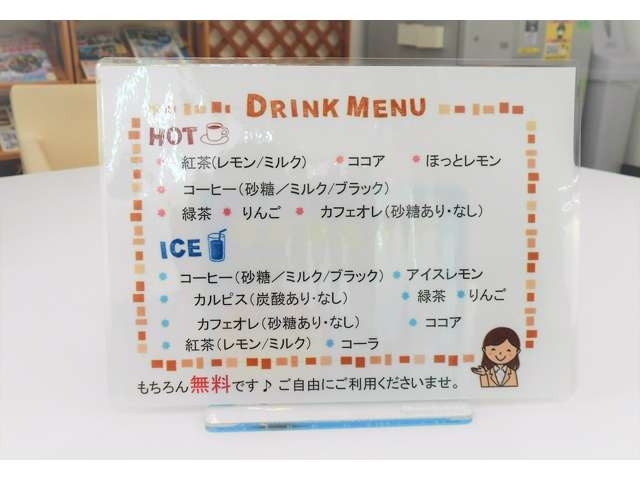 DRINK MENU
HOT
紅茶(レモン/ミルク) ココア ほっとレモン
コーヒー(砂糖／ミルク/ブラック)
緑茶 りんご カフェオレ(砂糖あり・なし)
ICE
コーヒー(砂糖／ミルク/ブラック) アイスレモン
カルピス(炭酸あり・なし) 緑茶 りんご
カフェオレ(砂糖あり・なし) ココア
紅茶(レモン/ミルク) コーラ
もちろん無料です♪ご自由にご利用くださいませ。